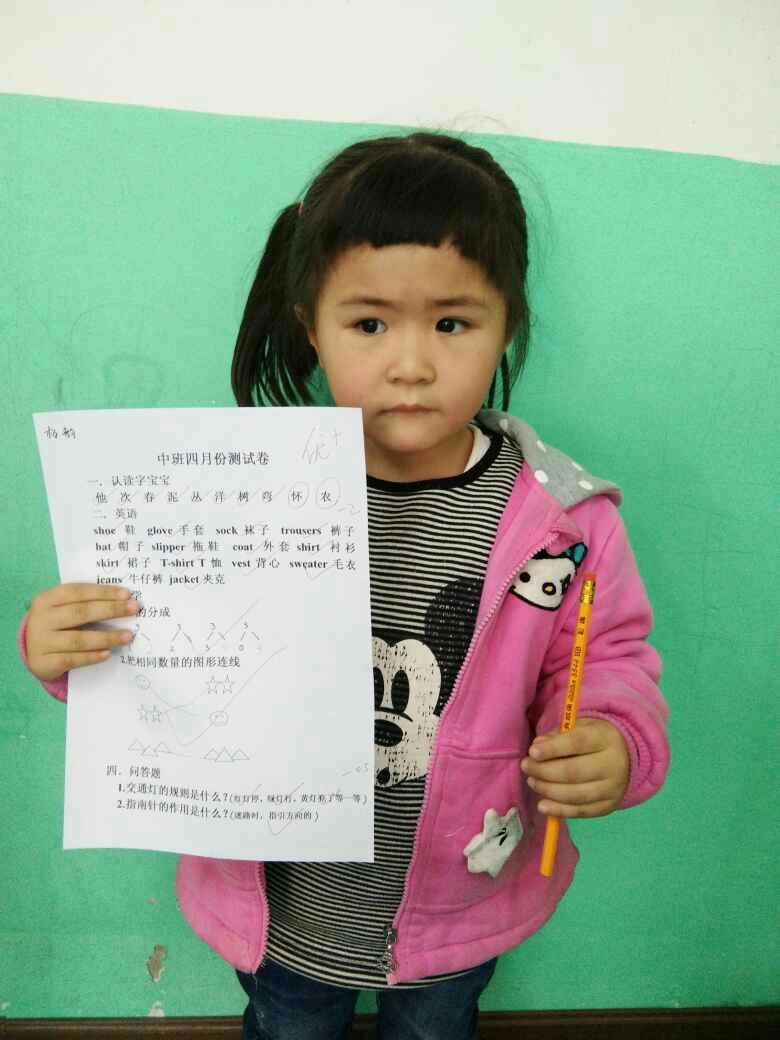 杨韵
中班四月份测试卷
优+
一．认读字宝宝
他 次 春 泥 丛 洋 树 弯 怀 农
-2
二．英语
shoe 鞋 glove 手套 sock 袜子 trousers 裤子
hat 帽子 slipper 拖鞋 coat 外套 shirt 衬衫
skirt 裙子 T-shirt T 恤 vest 背心 sweater 毛衣
jeans 牛仔裤 jacket 夹克
学
的分成
3 3 3 3
2 3 0
2.把相同数量的图形连线
四．问答题
-0.5
1.交通灯的规则是什么？(红灯停，绿灯行，黄灯亮了等一等)
2.指南针的作用是什么？(迷路时，指引方向的)